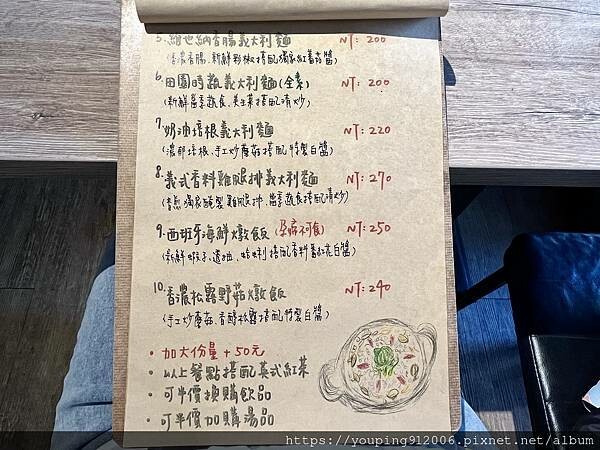 5. 維也納香腸義大利麵 NT: 200
(香濃香腸、新鮮彩椒搭配獨家紅蕃茄醬)
6. 田園時蔬義大利麵(全素) NT: 200
(新鮮當季蔬食、美生菜搭配清炒)
7. 奶油培根義大利麵 NT: 220
(濃郁培根、手工炒蘑菇搭配特製白醬)
8. 義式香料雞腿排義大利麵 NT: 270
(香煎獨家醃製雞腿排、當季蔬食搭配清炒)
9. 西班牙海鮮燉飯 (孕婦不可食) NT: 250
(新鮮蝦子、透抽、蛤蜊搭配香料番紅花白醬)
10. 香濃松露野菇燉飯 NT: 240
(手工炒蘑菇、香醇松露搭配特製白醬)
• 加大份量 + 50元
• 以上餐點搭配英式紅茶
• 可半價換購飲品
• 可半價加購湯品
https://youping912006.pixnet.net/album